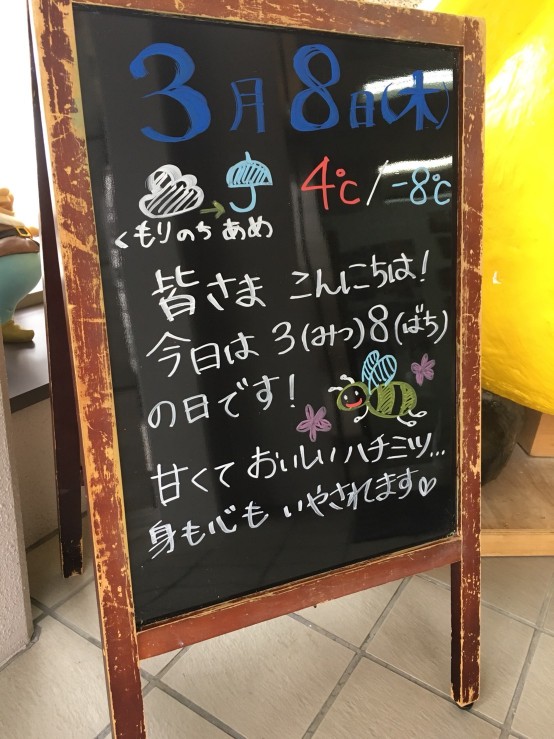 3月8日(木)
4℃/-8℃
くもりのち あめ
皆さま こんにちは!
今日は3(みつ)8(ばち)
の日です!
甘くて おいしいハチミツ…
身も心も いやされてます♡